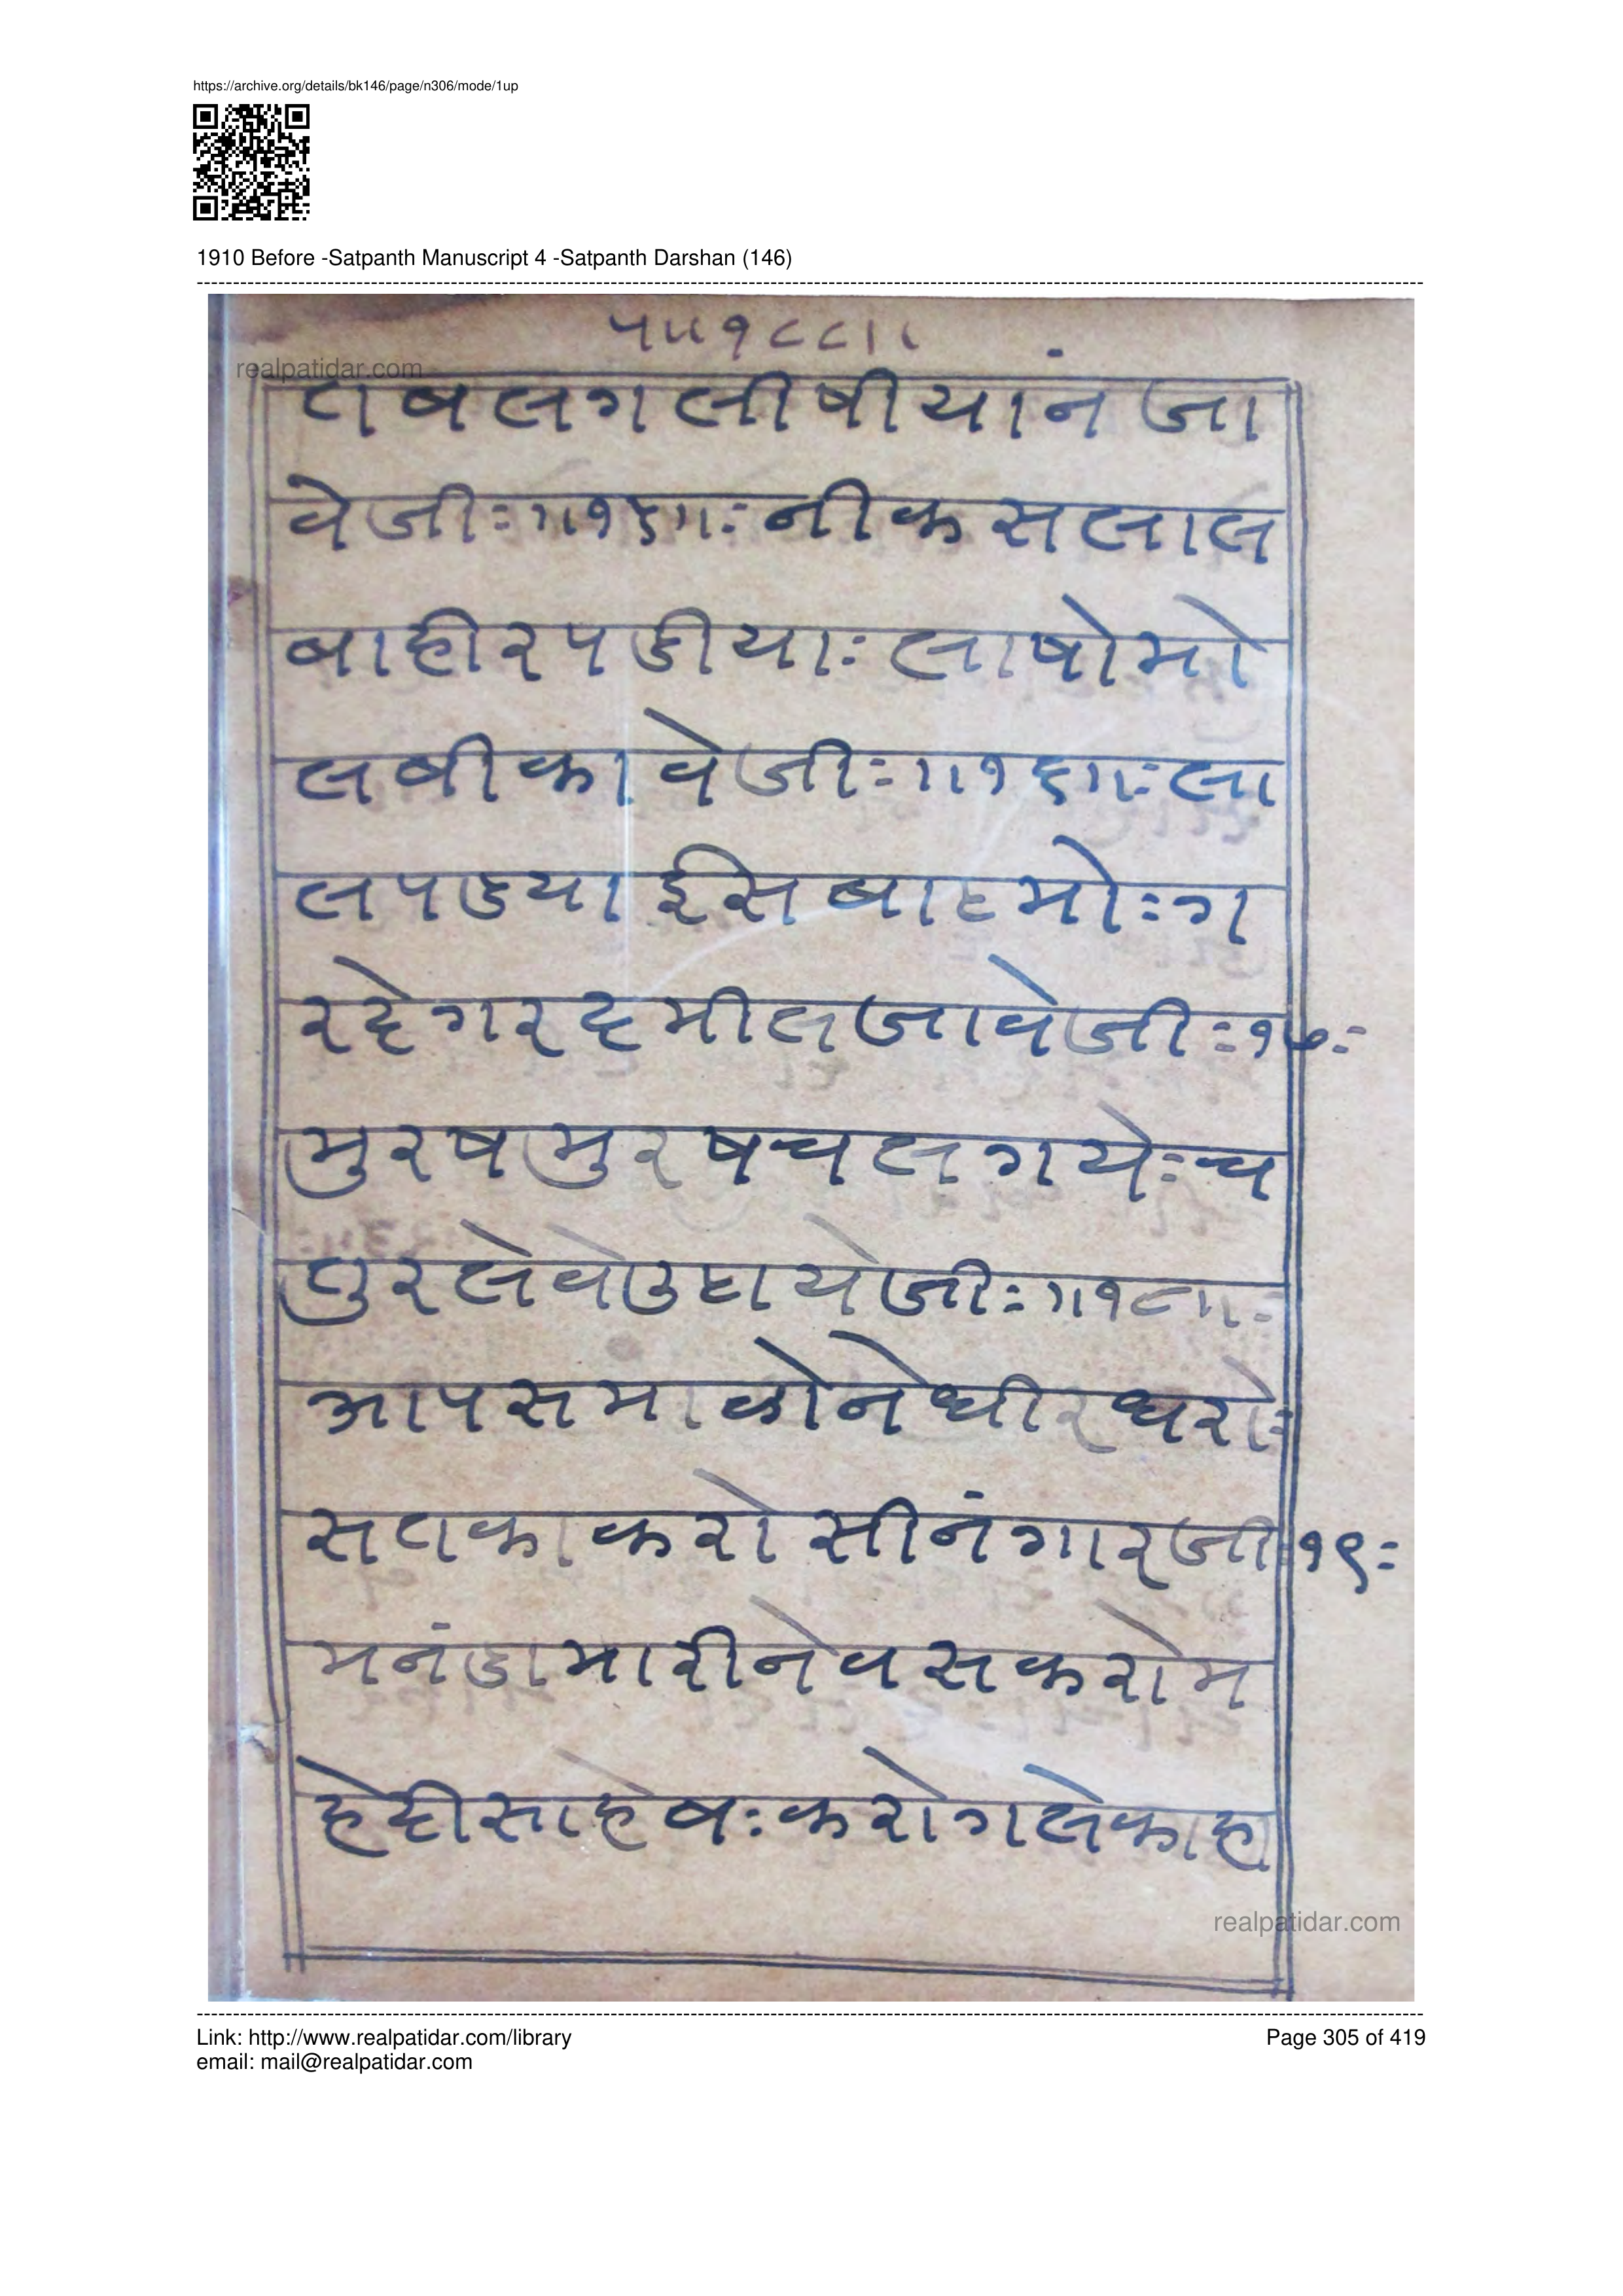 https://archive.org/details/bk146/page/n306/mode/1up
1910 Before -Satpanth Manuscript 4 -Satpanth Darshan (146)
प॥१८८॥
realpatidar.com
तबलगलीषीयानं जा
वेजीः॥१६॥ः नीकसलाल
बाहीरपडीयाः लाषोमो
लबीकावेजीः॥१६॥ः ला
लपडया ईस बाटमोः ग
रदेगरद मीलजावेजीः१७ः
मुरषमुरषचलगयेः च
तुरलेवेउठायेजीः॥१८॥ः
आपसमाकोनेधीरधरोः
सतकाकरो सीनंगारजीः१९ः
मनंडामारीनेवसकरोम
हेदीसाहेबः करोगलेकाहा
realpatidar.com
Link: http://www.realpatidar.com/library
Page 305 of 419
email: mail@realpatidar.com